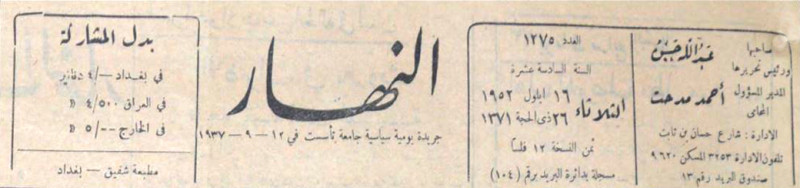 صاحبها ورئيس تحريرها عبد الله حسن
المدير المسؤول المحامي أحمد مدحت
الادارة : شارع حسان بن ثابت
تلفون الادارة ٣٢٥٣ المسكن ٩٦٢٠
صندوق البريد رقم ١٣
العدد ١٢٧٥
السنة السادسة عشرة
الثلاثاء ١٦ ايلول ١٩٥٢
٢٦ ذي الحجة ١٣٧١
ثمن النسخة ١٢ فلساً
مسجلة بدائرة البريد برقم (١٠٤)
النهار
جريدة يومية سياسية جامعة تأسست في ١٢ – ٩ – ١٩٣٧
بدل المشاركة
في بغداد ٤/– دنانير
في العراق ٤/٥٠٠ »
في الخارج ٥/–– »
مطبعة شفيق – بغداد